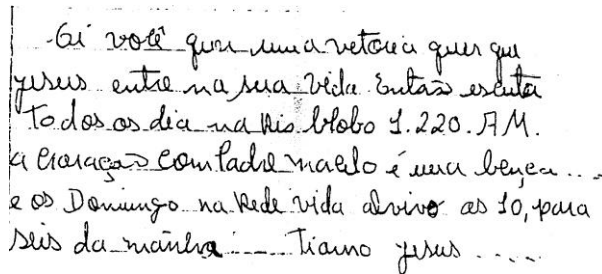 Gi você quer uma vetoria quer que
jesus entre na sua vida Então escuta
Todos os dia na Rio blobo 1.220. A M.
a Coração Com Padre macelo é uma bença....
e os Domingo na Rede vida alvivo as 10, para
seis da manhã ..... Tiamo jesus .....